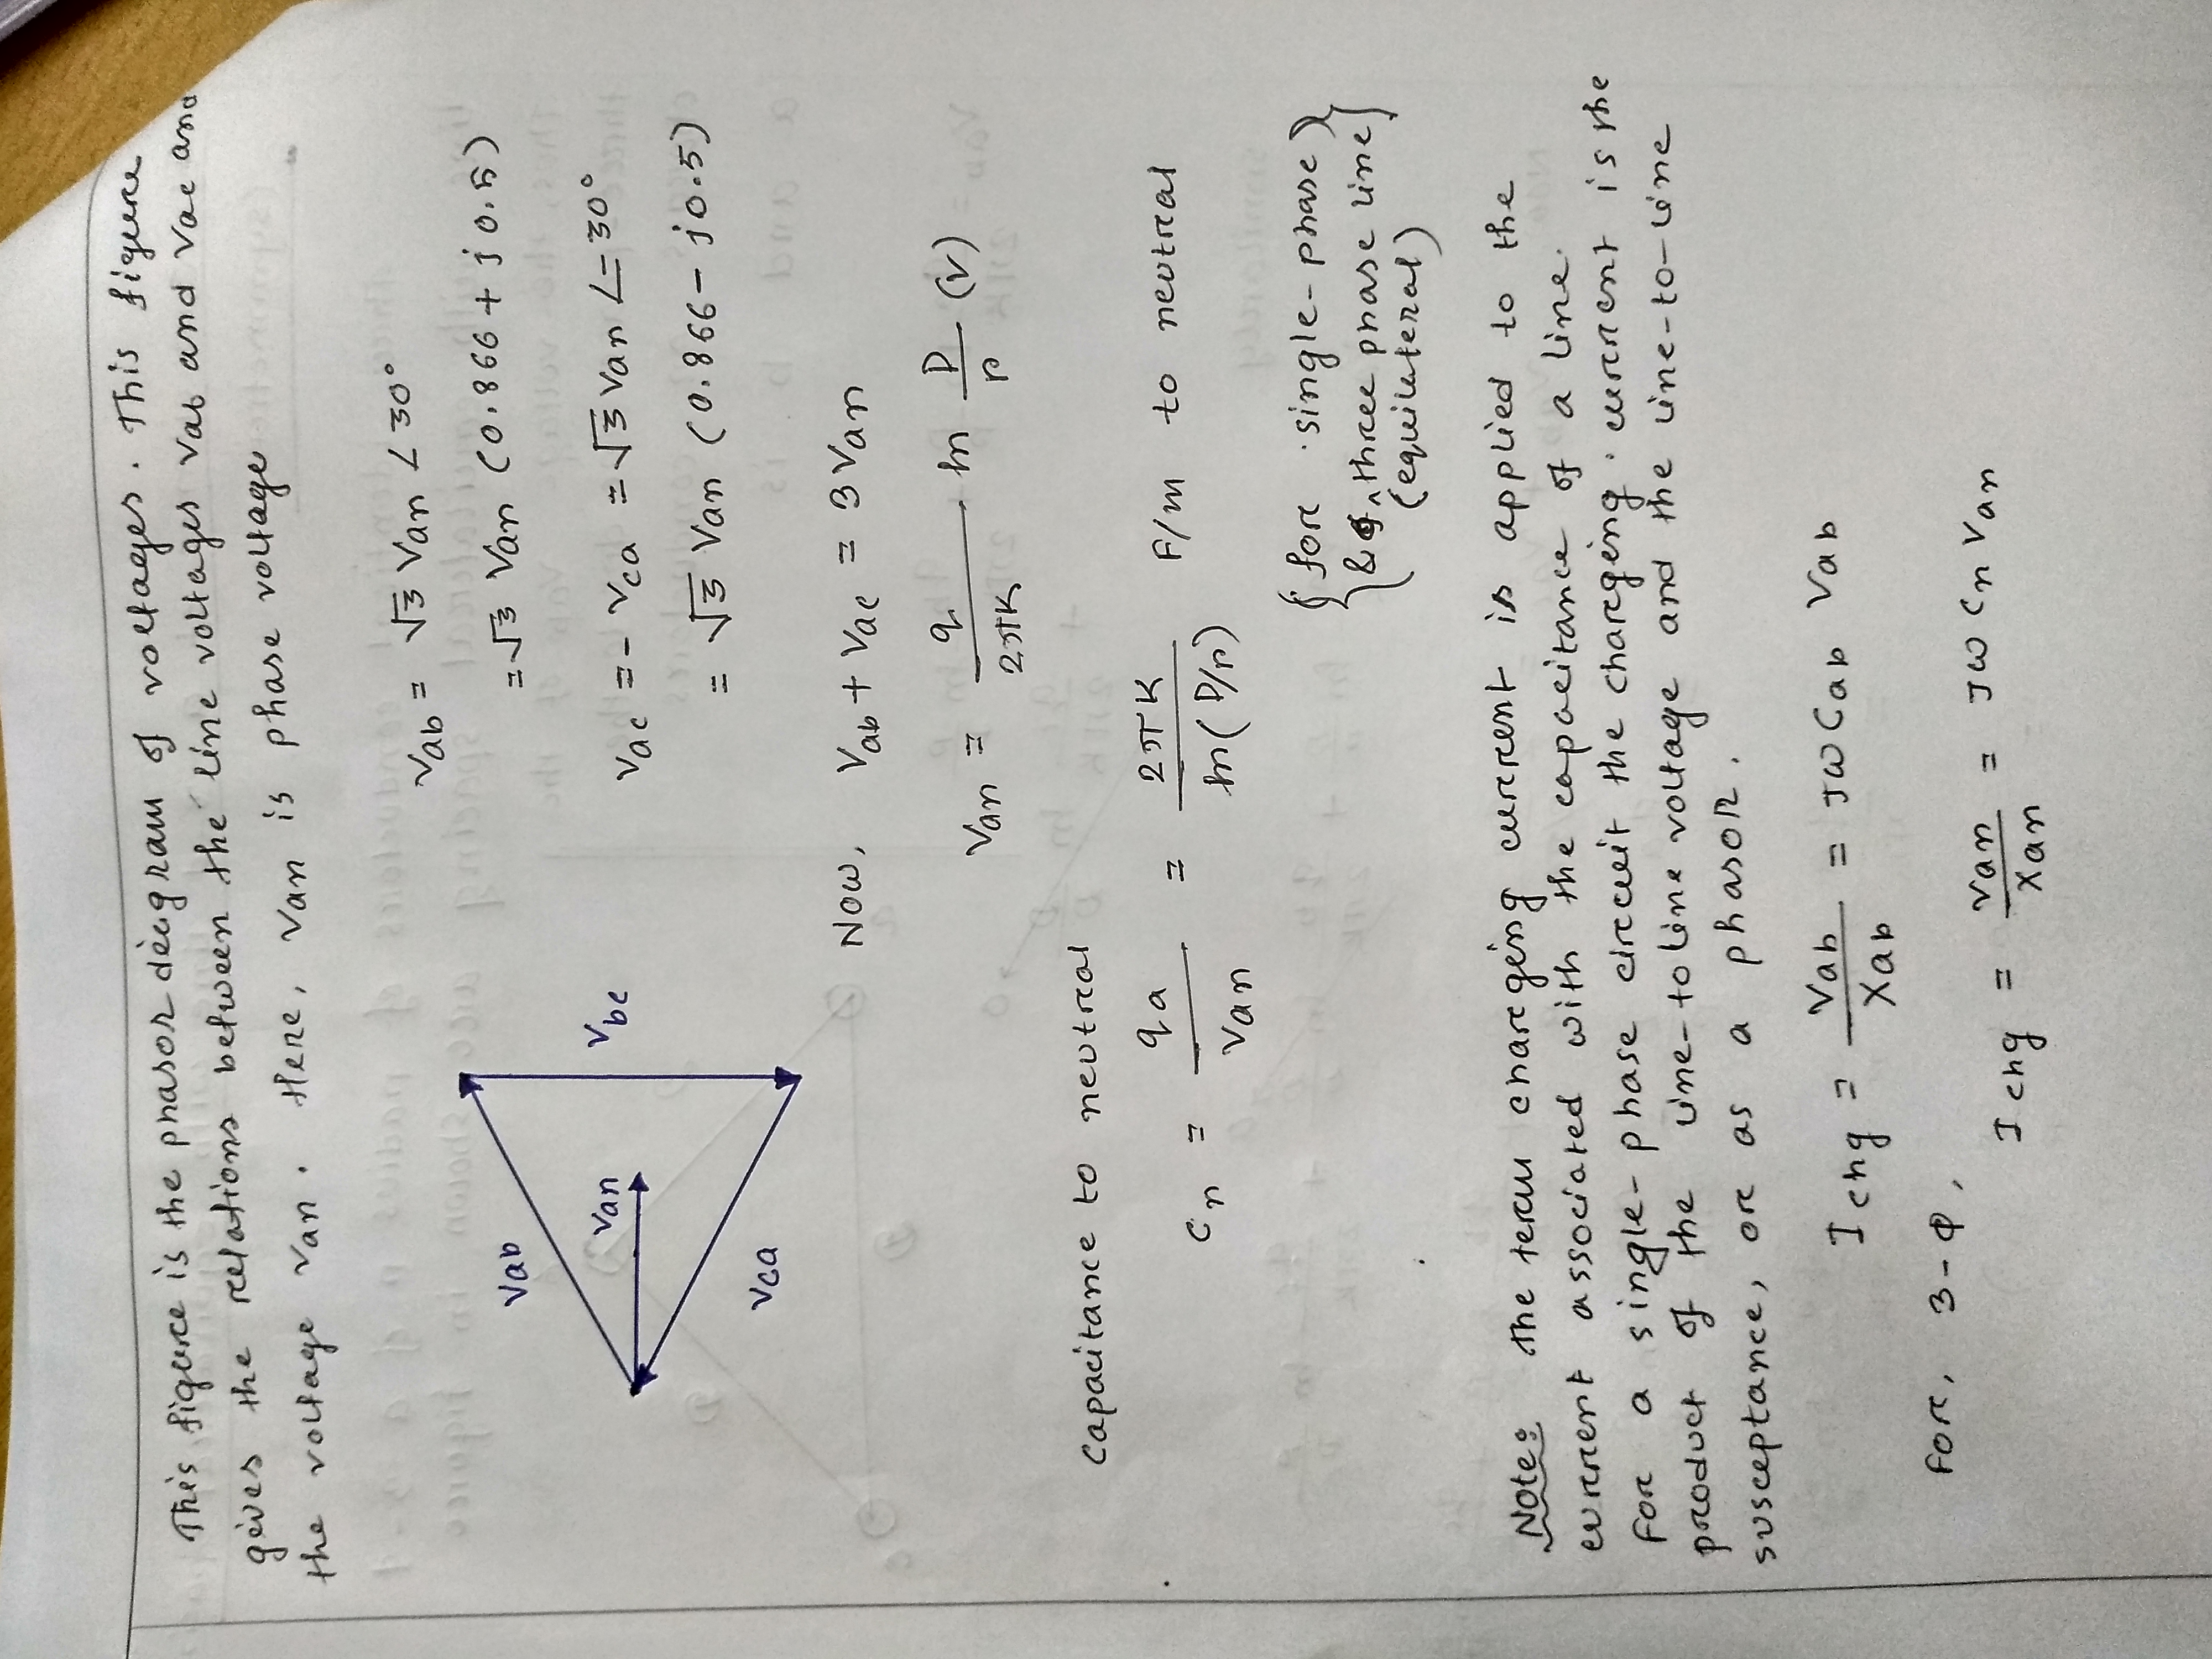 This figure is the phasor diagram of voltages. This figure
gives the relations between the line voltages Vab and Vac and
the voltage Van. Here, Van is phase voltage
Vab = √3 Van ∠30°
= √3 Van (0.866 + j0.5)
Vac = - Vca = √3 Van ∠-30°
= √3 Van (0.866 - j0.5)
Vab
Van
Vbc
Vca
Now, Vab + Vac = 3Van
Van = q/2πK ln D/r (V)
Capacitance to neutral
Cn = qa/Van = 2πK/ln(D/r) F/m to neutral
{for single-phase}
{& three phase line}
(equilateral)
Note: The term charging current is applied to the
current associated with the capacitance of a line.
For a single-phase circuit the charging current is the
product of the line-to line voltage and the line-to-line
susceptance, or as a phasor.
Ichg = Vab/Xab = jω Cab Vab
For, 3-φ,
Ichg = Van/Xan = jω Cn Van